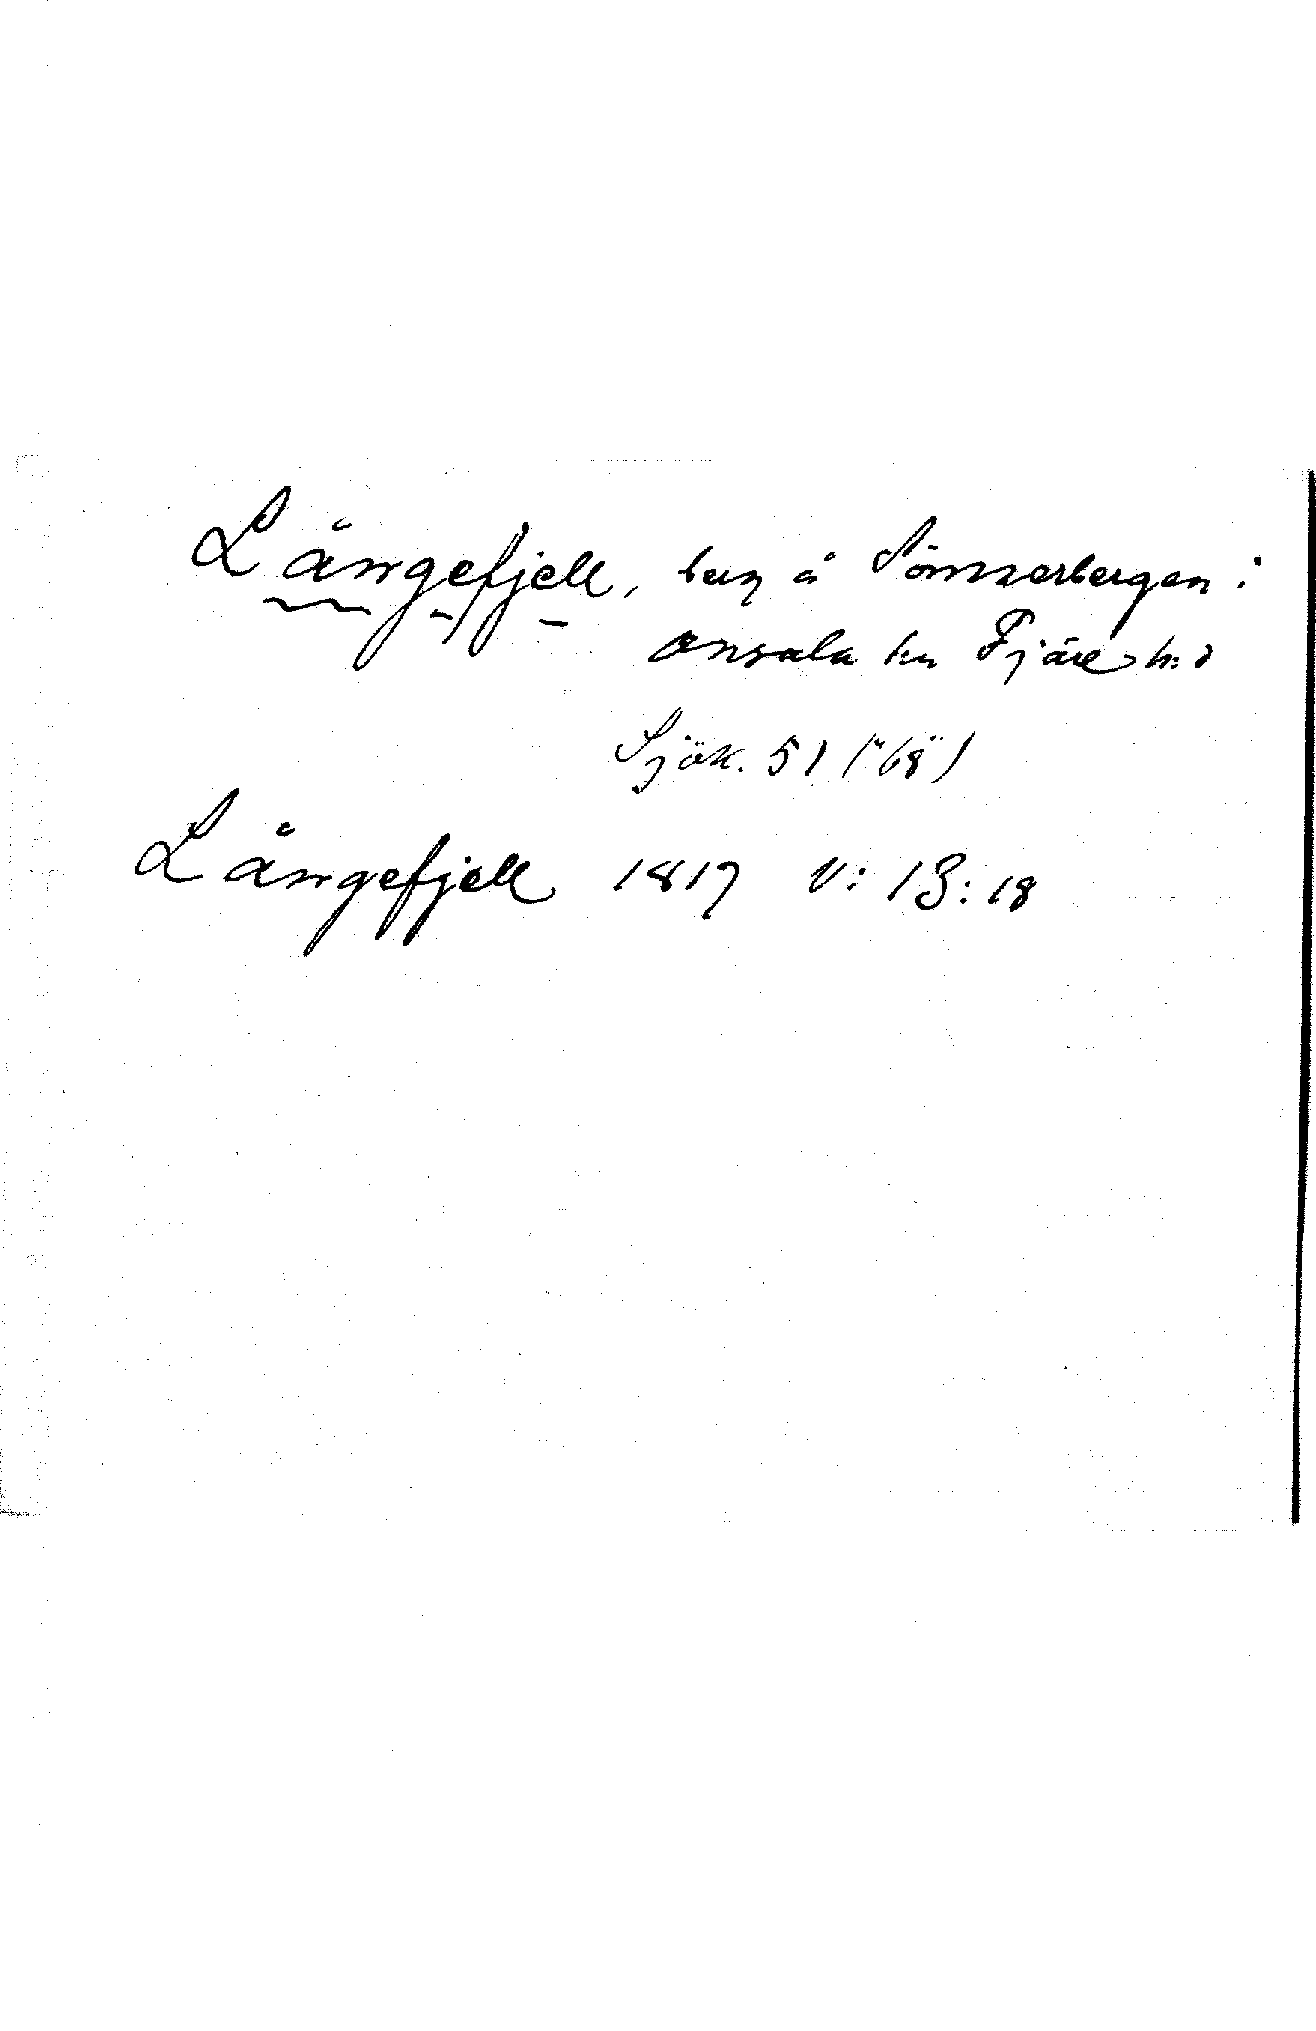 Långefjell, berg å Sönnerbergen i
Onsala sn Fjäre hd
Sjök. 51 ("68")
Långefjell 1817 V: 13: 18